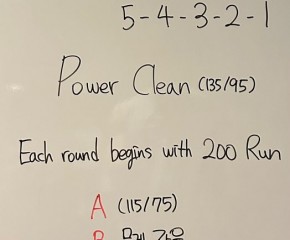 5-4-3-2-1
Power Clean (135/95)
Each round begins with 200 Run
A (115/75)